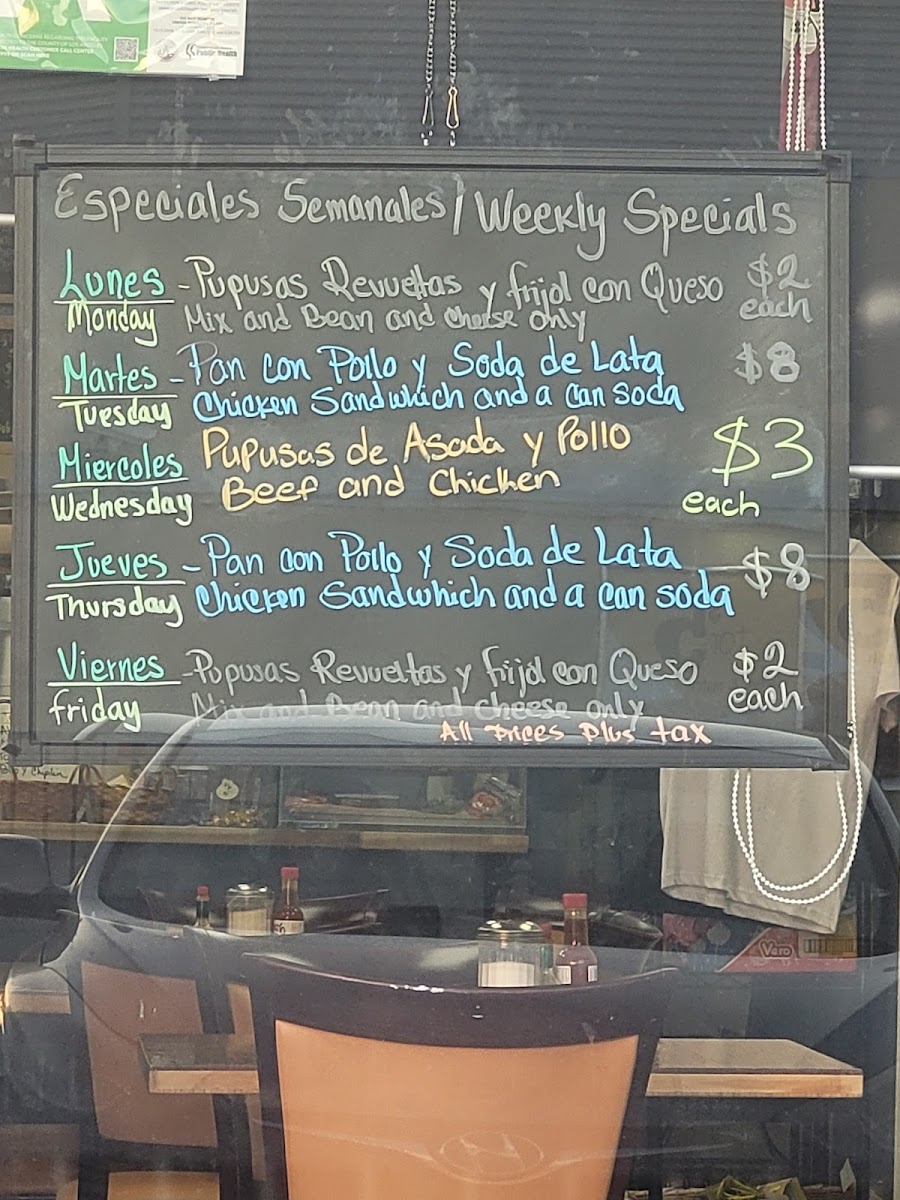 HEALTH CUSTOMER CALL CENTER
Public Health
Especiales Semanales / Weekly Specials
Lunes - Pupusas Revueltas y frijol con Queso $2
Monday Mix and Bean and cheese only each
Martes - Pan con Pollo y Soda de Lata $8
Tuesday Chicken Sandwhich and a can soda
Miercoles Pupusas de Asada y Pollo $3
Wednesday Beef and Chicken each
Jueves - Pan con Pollo y Soda de Lata $8
Thursday Chicken Sandwhich and a can soda
Viernes - Pupusas Revueltas y frijol con Queso $2
friday Mix and Bean and cheese only each
All Prices Plus tax
Vero